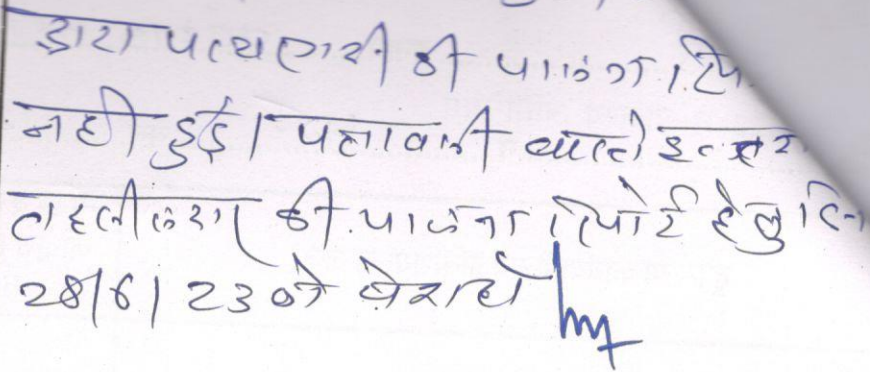 द्वारा पत्थरगढी की पालना रि
नही हुई। पत्रावली वास्ते इन्तजार
तहसीलदार की पालना रिपोर्ट हेतु दि
28/6/23 को पेश हो